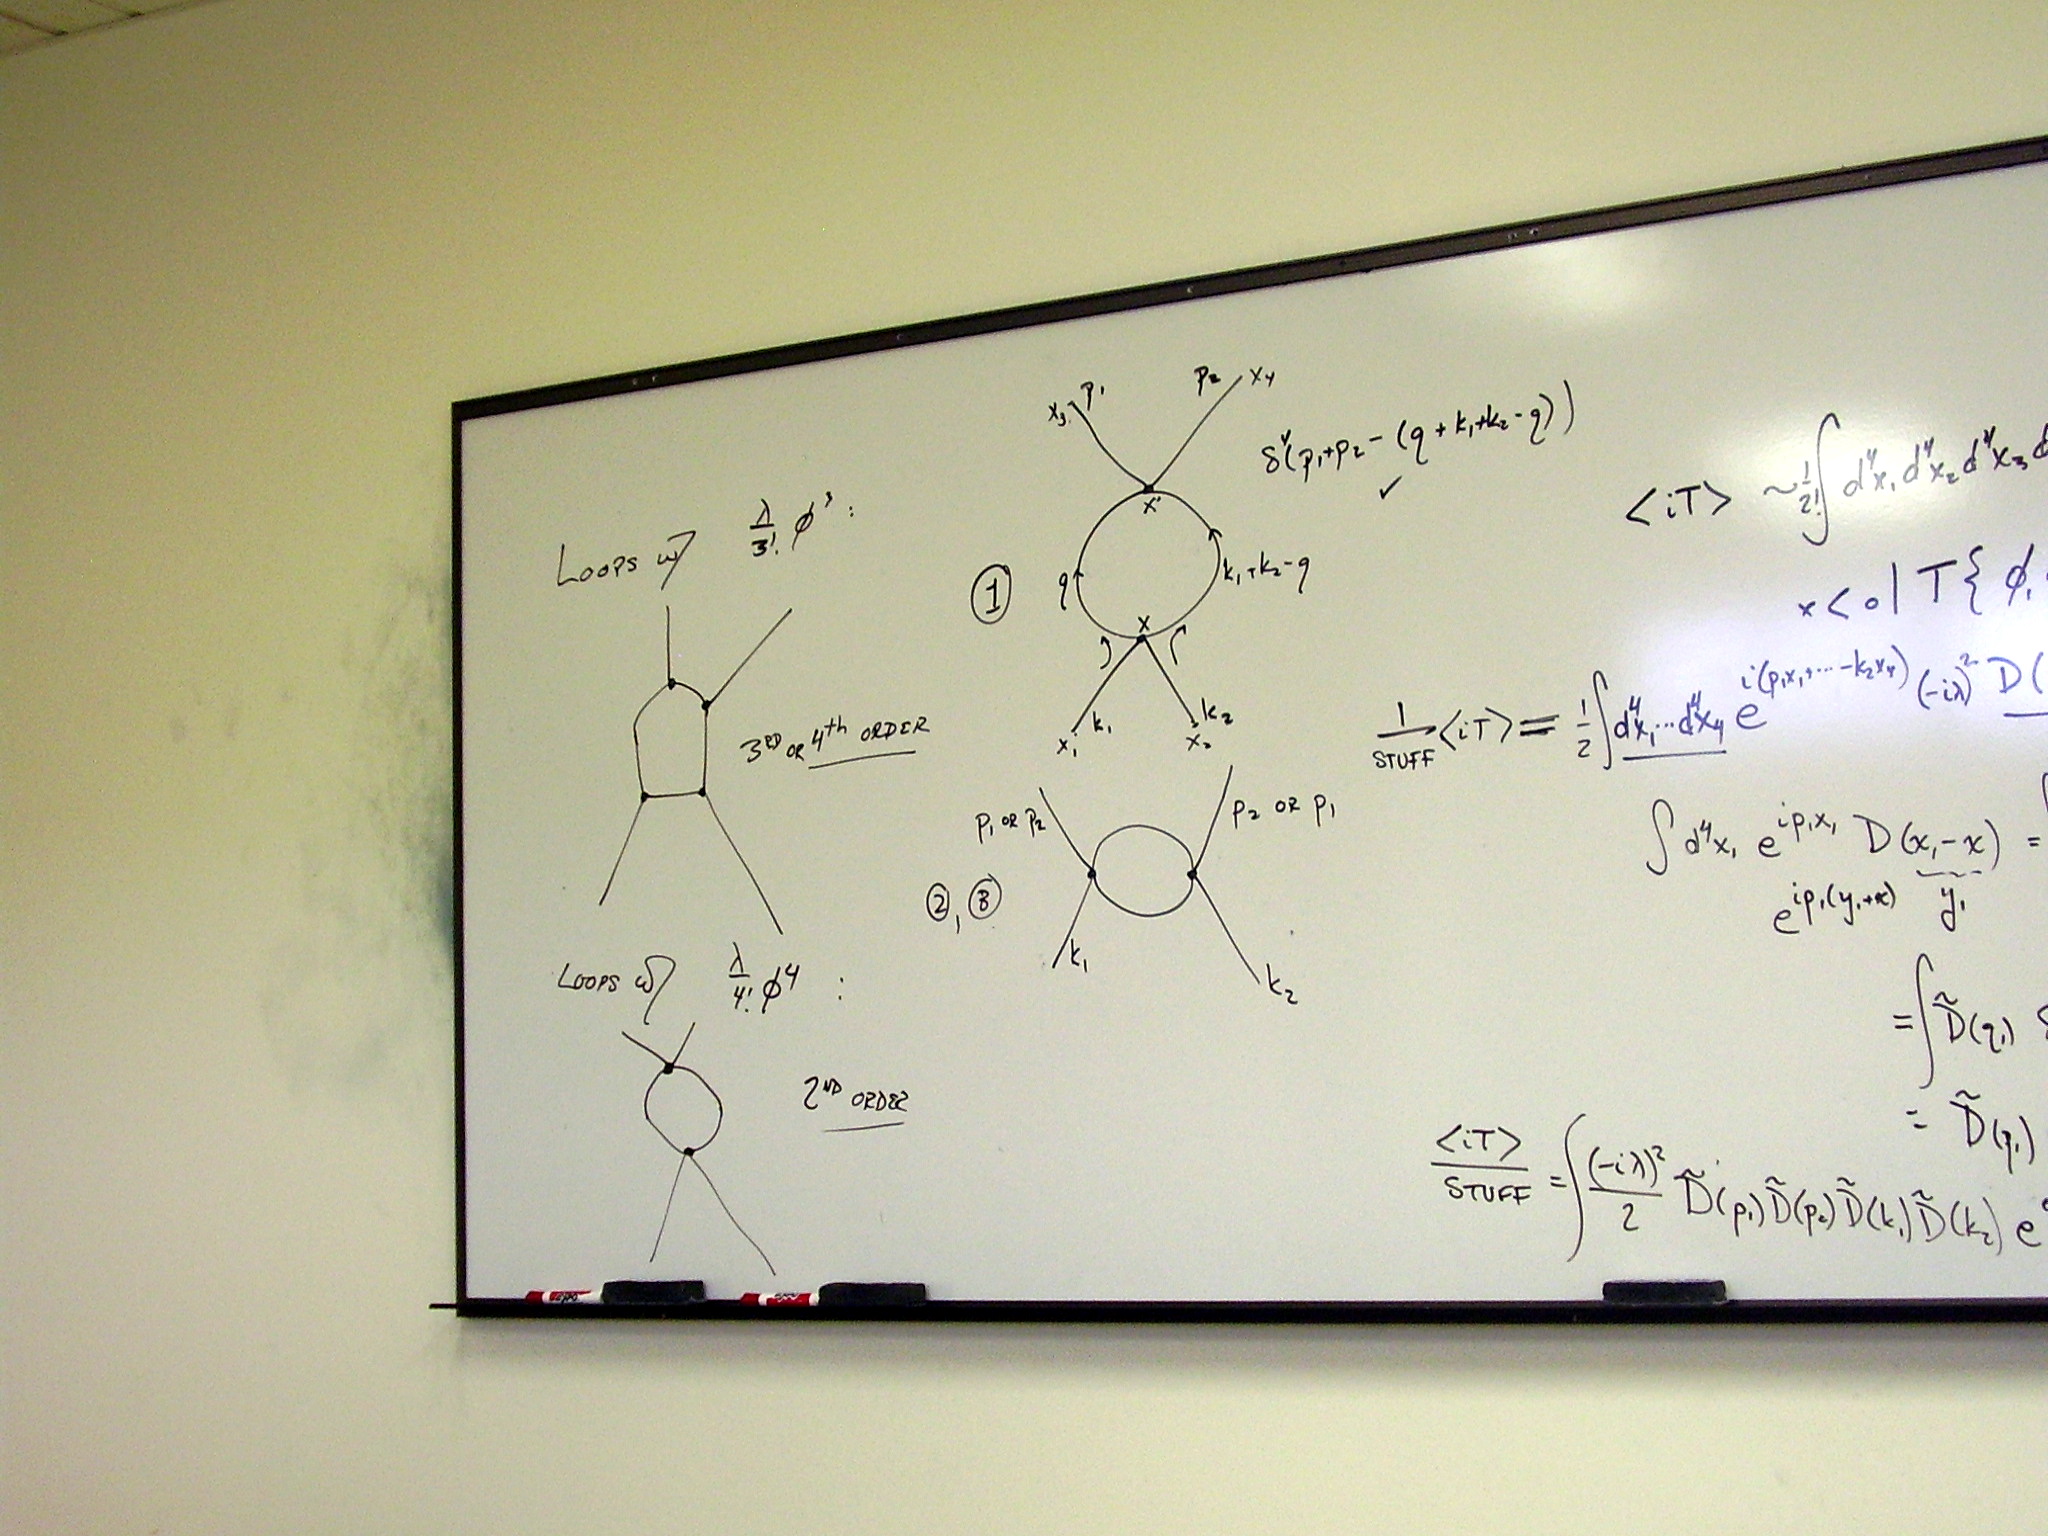 LOOPS w/ λ/3! φ³ :
3RD OR 4th ORDER
LOOPS w/ λ/4! φ⁴ :
2ND ORDER
x₃ p₁ p₂ x₄
δ⁴(p₁+p₂ - (q + k₁+k₂ - q))
✓
x'
①
q k₁+k₂-q
x
k₁ k₂
x₁ x₂
p₁ OR p₂ p₂ OR p₁
②, ③
k₁ k₂
<iT> ~ 1/2! ∫ d⁴x₁ d⁴x₂ d⁴x₃ d
x <0| T{ φ₁
1/STUFF <iT> = 1/2 ∫ d⁴x₁...d⁴x₄ e^{i(p₁x₁+...-k₂x₄)} (-iλ)² D(
∫ d⁴x₁ e^{ip₁x₁} D(x₁-x) =
e^{ip₁(y₁+x)} y₁
= ∫ D̃(q₁) δ
= D̃(p₁)
<iT>/STUFF = ∫ (-iλ)²/2 D̃(p₁) D̃(p₂) D̃(k₁) D̃(k₂) e